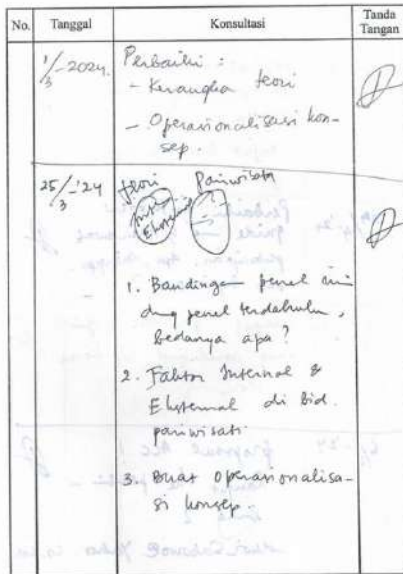 No. Tanggal Konsultasi Tanda Tangan
1/3-2024. Perbaiki :
- Kerangka teori
- Operasionalisasi kon-
sep.
25/3-'24 teori Pariwisata
Eksternal ?
1. Bandingan penel ini
dng penel terdahulu,
bedanya apa ?
2. Faktor Internal &
Eksternal di bid.
pariwisata
3. Buat operasionalisa-
si konsep.